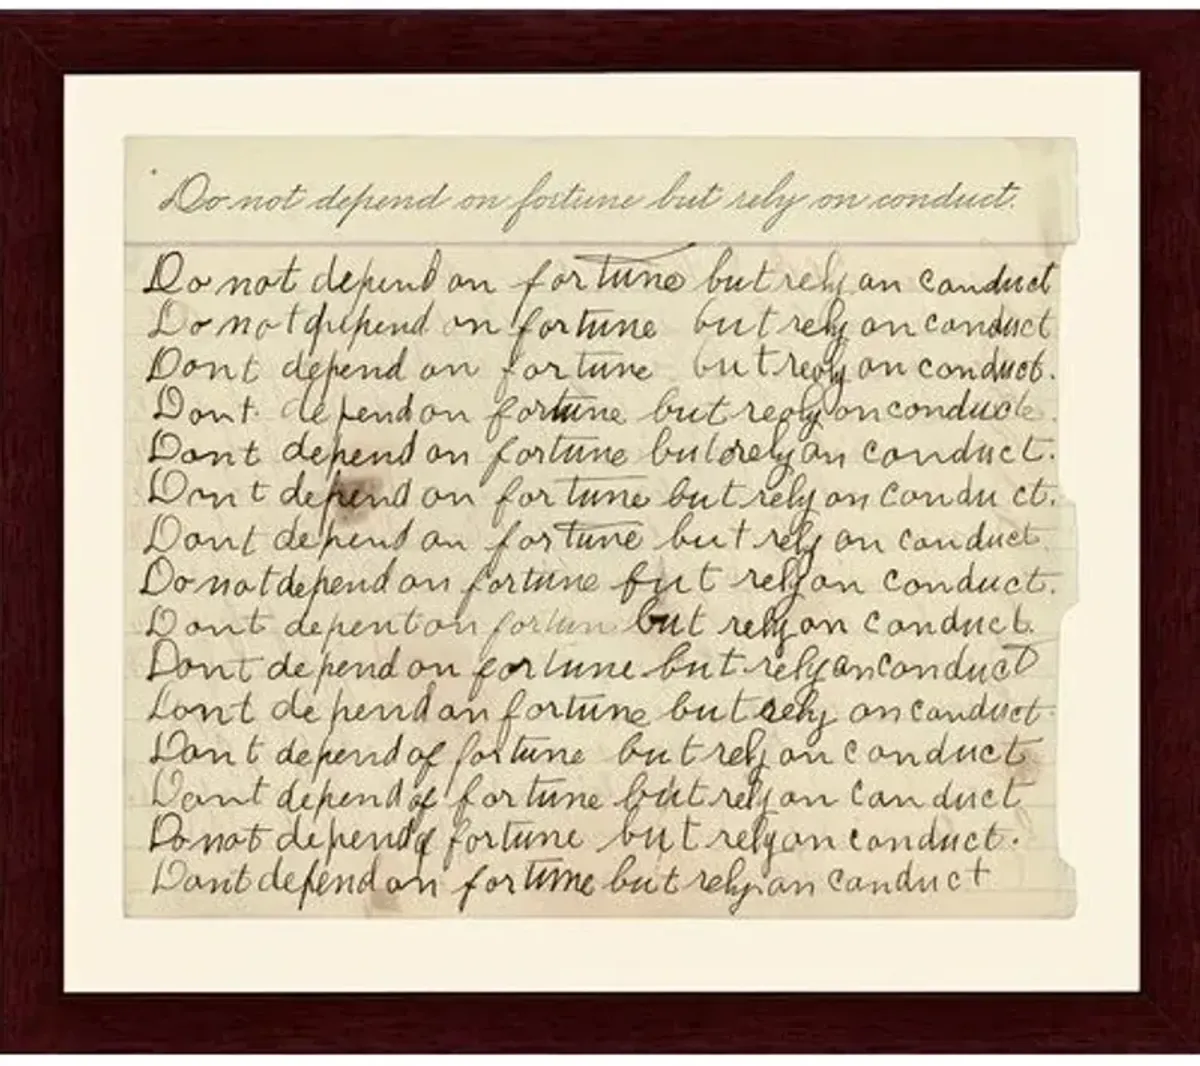 Do not depend on fortune but rely on conduct.
Do not depend on fortune but rely on conduct
Do not depend on fortune but rely on conduct
Dont depend on fortune but reoly on conduct.
Dont depend on fortune but reoly on conduct.
Dont depend on fortune but rely on conduct.
Dont depend on fortune but rely on conduct.
Dont depend on fortune but rely on conduct.
Do not depend on fortune but rely on conduct.
Dont depent on fortune but rely on conduct.
Dont depend on fortune but rely on conduct
Dont depend on fortune but rely on conduct.
Dont depend of fortune but rely on conduct
Dont depend of fortune but rely on conduct
Do not depend of fortune but rely on conduct.
Dont depend on fortune but rely on conduct